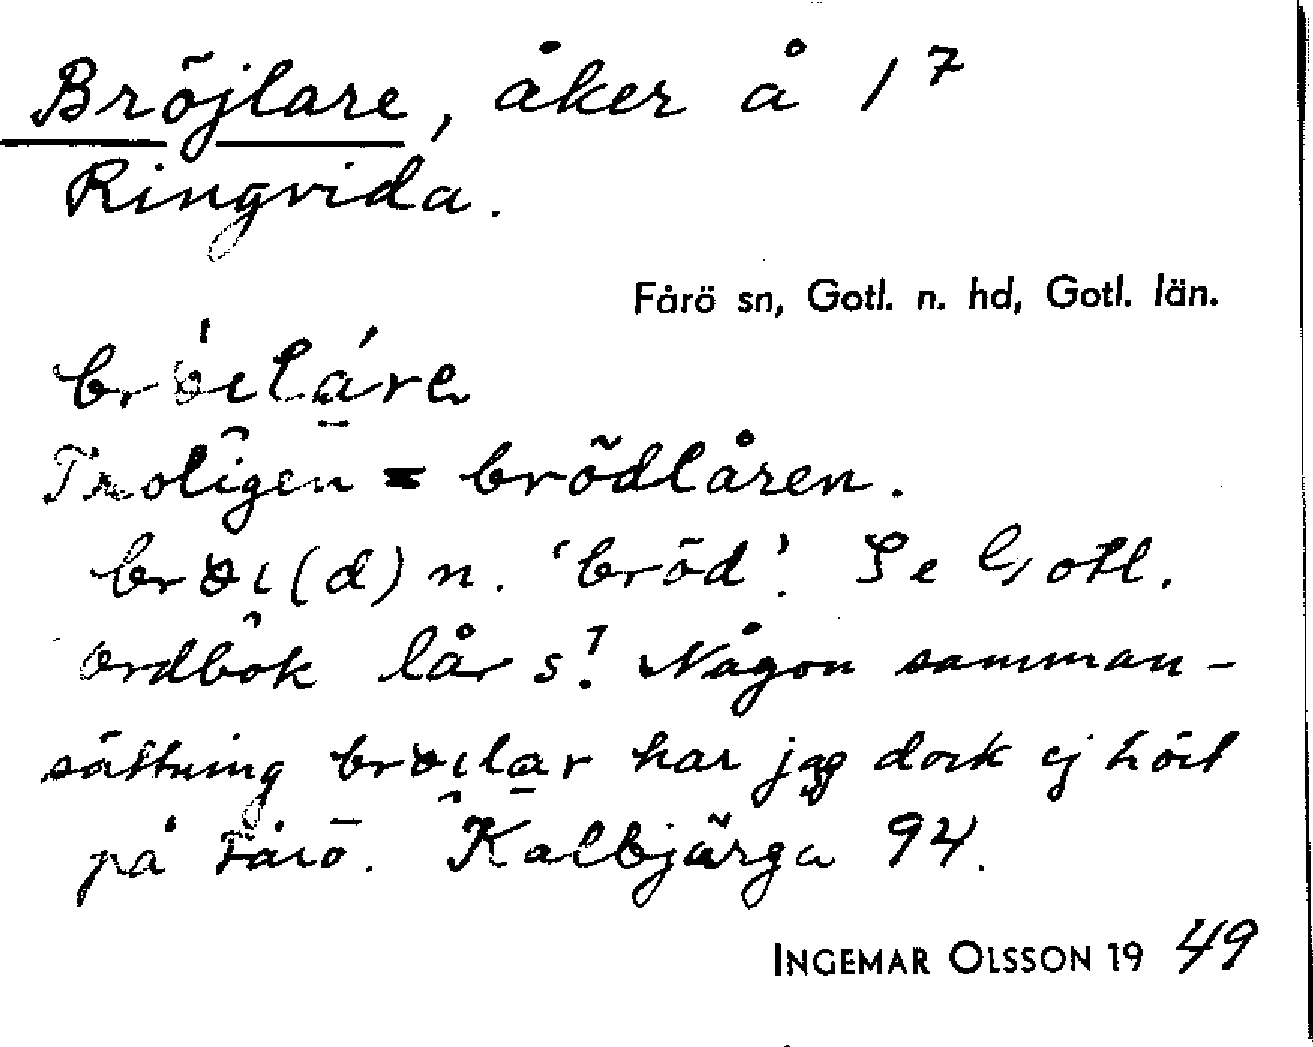 Bröjlare, åker å 1⁷
Ringvida.
Fårö sn, Gotl. n. hd, Gotl. län.
Troligen = brödlåren.
brɵi(d) n. 'bröd'. Se Gotl.
ordbok lår s.¹ Någon samman-
sättning brɵilar har jag dock ej hört
på Fårö. Kalbjärga 94.
INGEMAR OLSSON 19 49